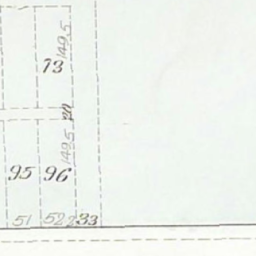 149.5
73
20
149.5
95 96
51 52 33